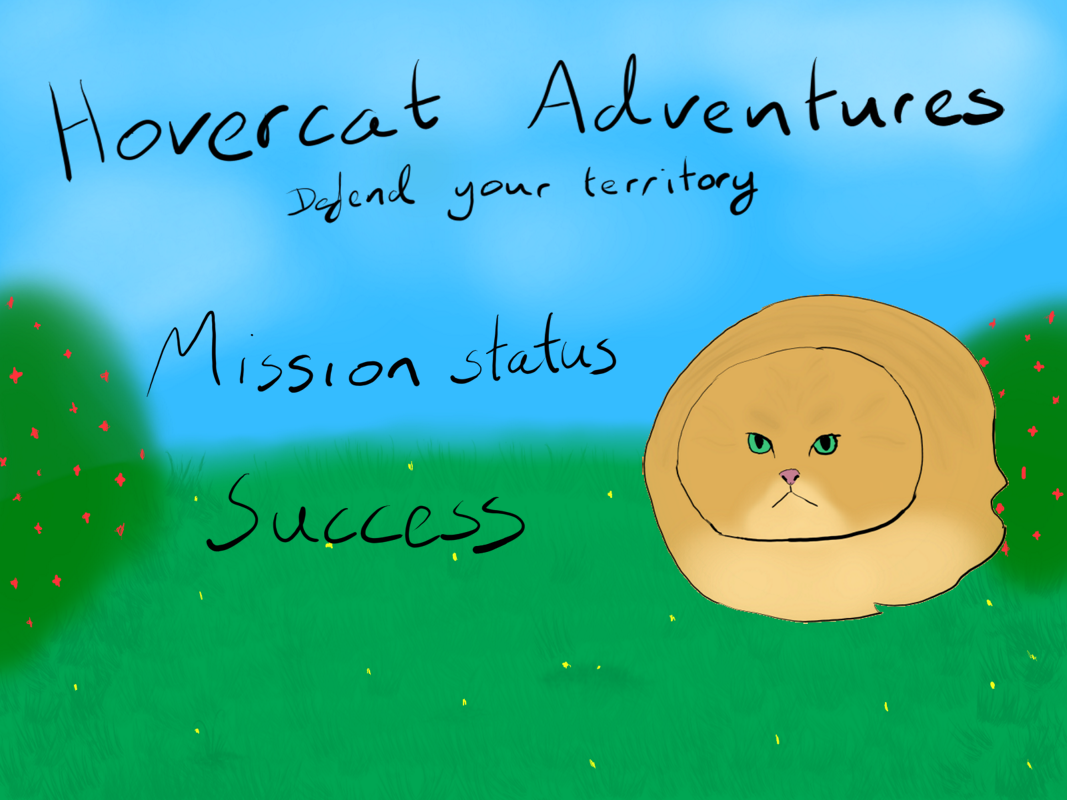 Hovercat Adventures
Defend your territory
Mission status
Success